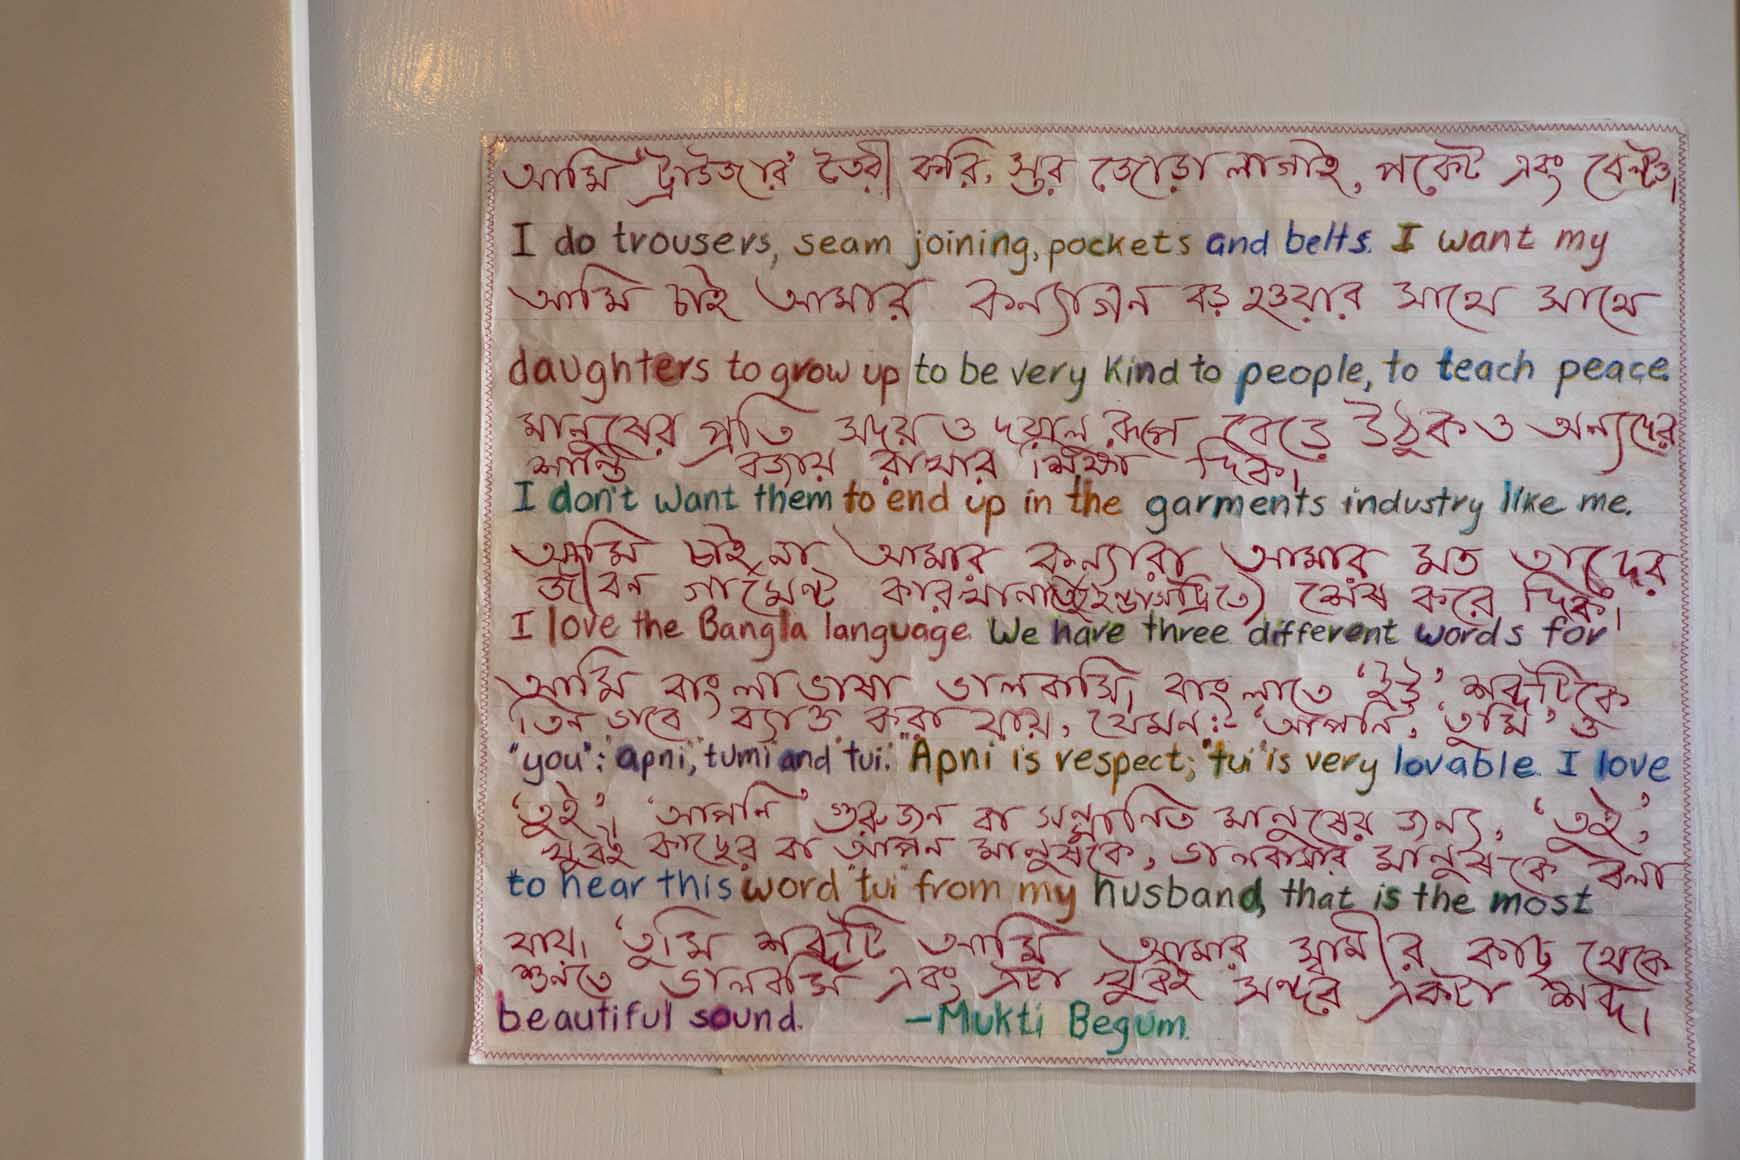 আমি 'ট্রাউজার' তৈরী করি, সুর জোড়া লাগাই, পকেট এবং বেল্টও,
I do trousers, seam joining, pockets and belts. I want my
আমি চাই আমার কন্যাগন বড় হওয়ার সাথে সাথে
daughters to grow up to be very kind to people, to teach peace.
মানুষের প্রতি সদয় ও দয়ালু রূপে বেড়ে উঠুক ও অন্যদের
শান্তি বজায় রাখার শিক্ষা দিক।
I don't want them to end up in the garments industry like me.
আমি চাই না আমার কন্যারা আমার মত তাদের
জীবন গার্মেন্ট শেষ করে দিক।
I love the Bangla language. We have three different words for
আমি বাংলা ভাষা ভালবাসি, বাংলাতে 'ইউ' শব্দটিকে
তিন ভাবে ব্যাক্ত করা যায়, যেমনঃ- 'আপনি', 'তুমি' ও
"you": "apni," "tumi" and "tui." "Apni" is respect; "tui" is very lovable. I love
'তুই'। 'আপনি' গুরুজন বা সম্মানিত মানুষের জন্য, 'তুই',
খুবই কাছের বা আপন মানুষকে, ভালবাসার মানুষকে বলা
to hear this word "tui" from my husband, that is the most
যায়। 'তুমি শব্দটি আমি আমার স্বামীর কাছ থেকে
শুনতে ভালবাসি এবং এটা খুবই সুন্দর একটা শব্দ।
beautiful sound. — Mukti Begum.